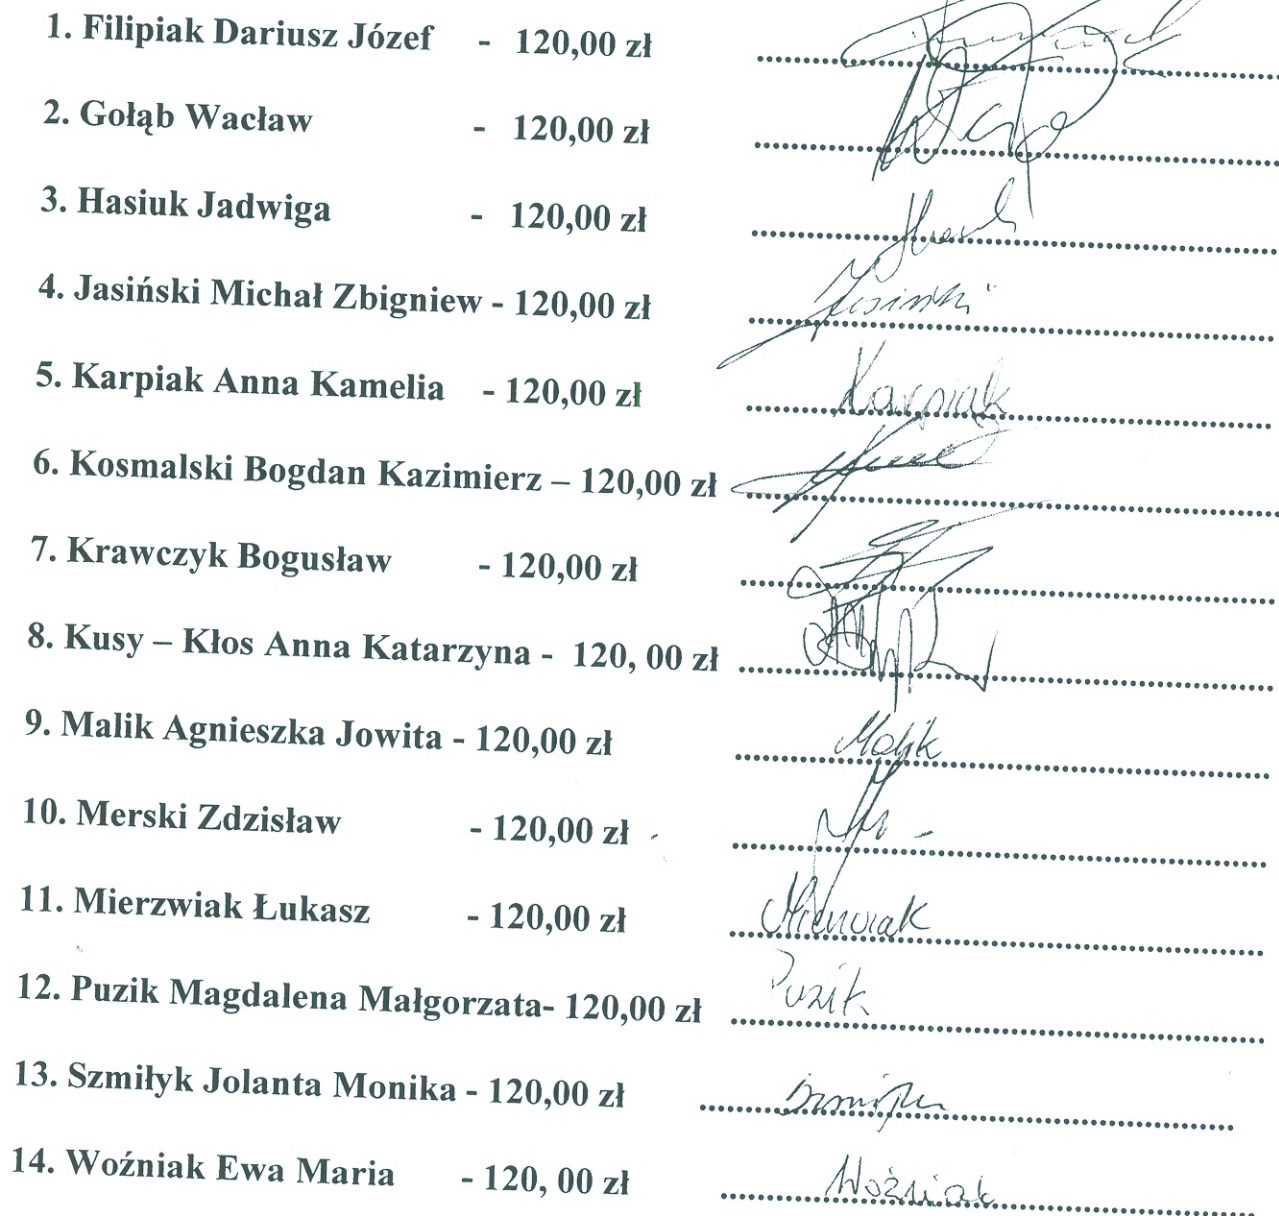 1. Filipiak Dariusz Józef - 120,00 zł
2. Gołąb Wacław - 120,00 zł
3. Hasiuk Jadwiga - 120,00 zł
4. Jasiński Michał Zbigniew - 120,00 zł Jasiński
5. Karpiak Anna Kamelia - 120,00 zł Karpiak
6. Kosmalski Bogdan Kazimierz – 120,00 zł
7. Krawczyk Bogusław - 120,00 zł
8. Kusy – Kłos Anna Katarzyna - 120, 00 zł
9. Malik Agnieszka Jowita - 120,00 zł Malik
10. Merski Zdzisław - 120,00 zł
11. Mierzwiak Łukasz - 120,00 zł Mierzwiak
12. Puzik Magdalena Małgorzata- 120,00 zł Puzik
13. Szmiłyk Jolanta Monika - 120,00 zł
14. Woźniak Ewa Maria - 120, 00 zł Woźniak